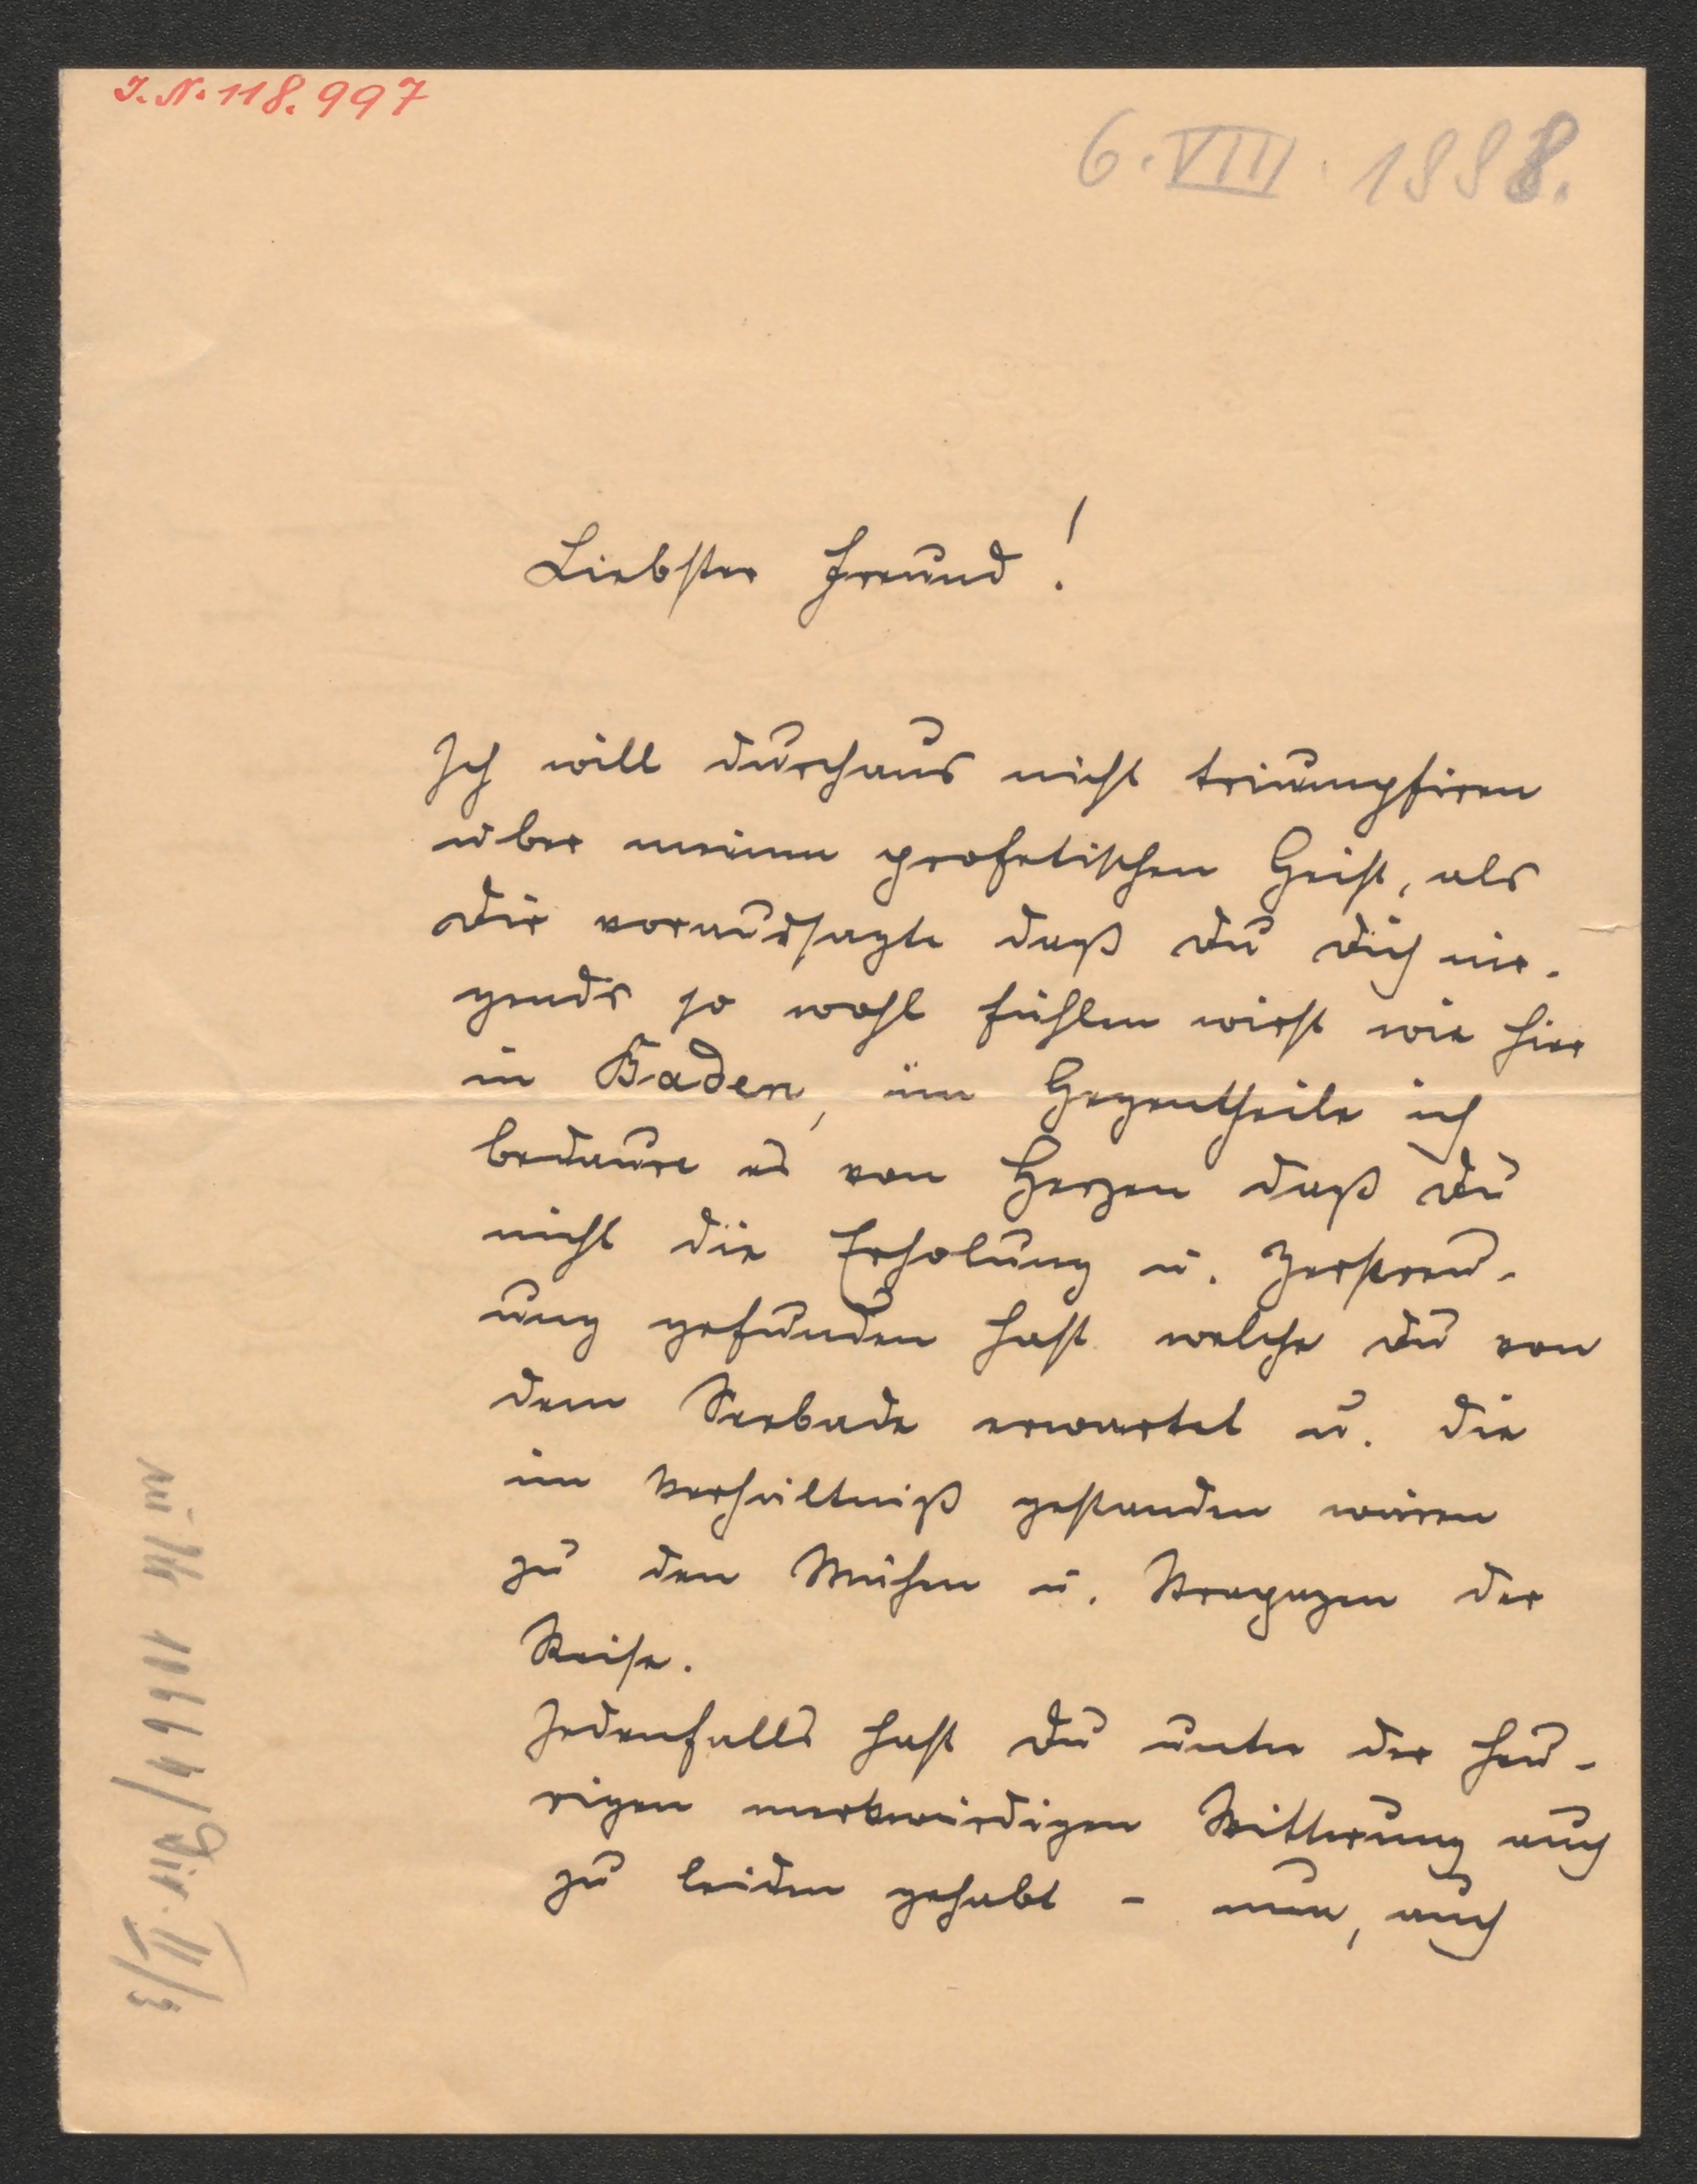 I. N. 118.997
6. VIII. 1888.
Liebster Freund!
Ich will durchaus nicht triumphiren
über meinen profetischen Geist, als
Dir voraussagte daß Du Dich nir-
gends so wohl fühlen wirst wie hier
in Baden, im Gegentheile ich
bedaure es von Herzen daß Du
nicht die Erholung u. Zerstreu-
ung gefunden hast welche Du von
dem Seebade erwartet u. die
im Verhältniß gestanden wären
zu den Mühen u. Strapazen der
Reise.
Jedenfalls hast Du unter der heu-
rigen merkwürdigen Witterung auch
zu leiden gehabt - nun, auch